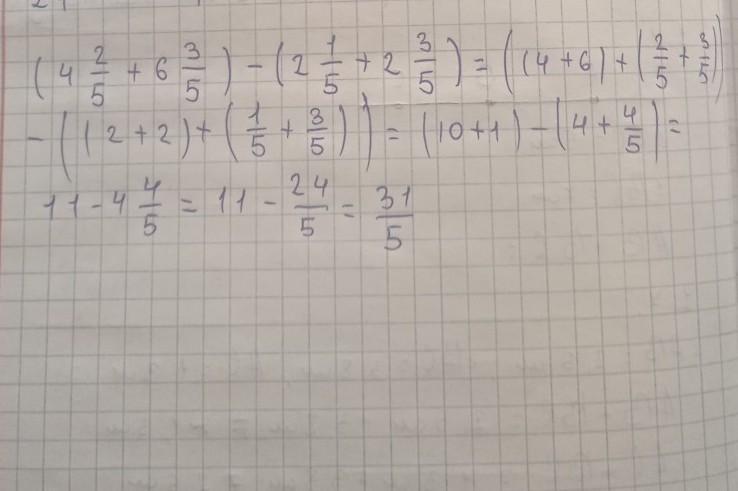 (4 2/5 + 6 3/5) - (2 1/5 + 2 3/5) = ((4+6) + (2/5 + 3/5))
- ((2+2) + (1/5 + 3/5)) = (10+1) - (4 + 4/5) =
11 - 4 4/5 = 11 - 24/5 = 31/5